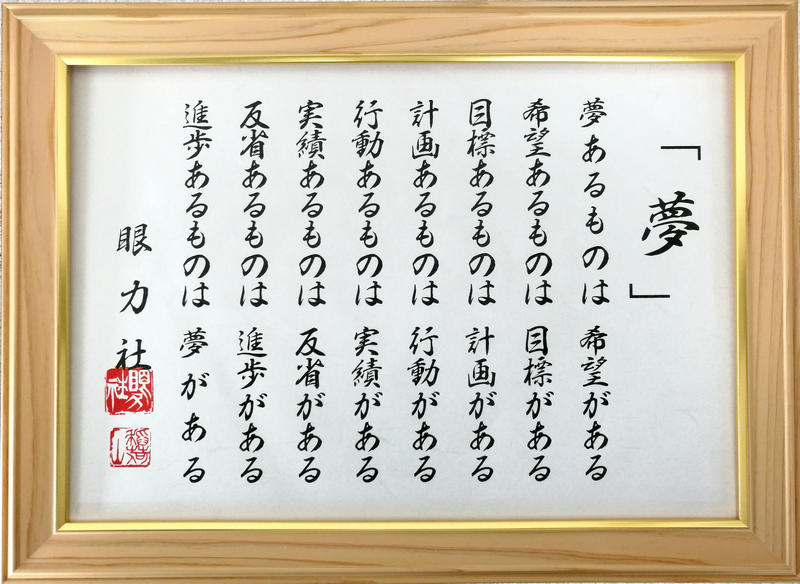 「夢」
夢あるものは 希望がある
希望あるものは 目標がある
目標あるものは 計画がある
計画あるものは 行動がある
行動あるものは 実績がある
実績あるものは 反省がある
反省あるものは 進歩がある
進歩あるものは 夢がある
眼力社